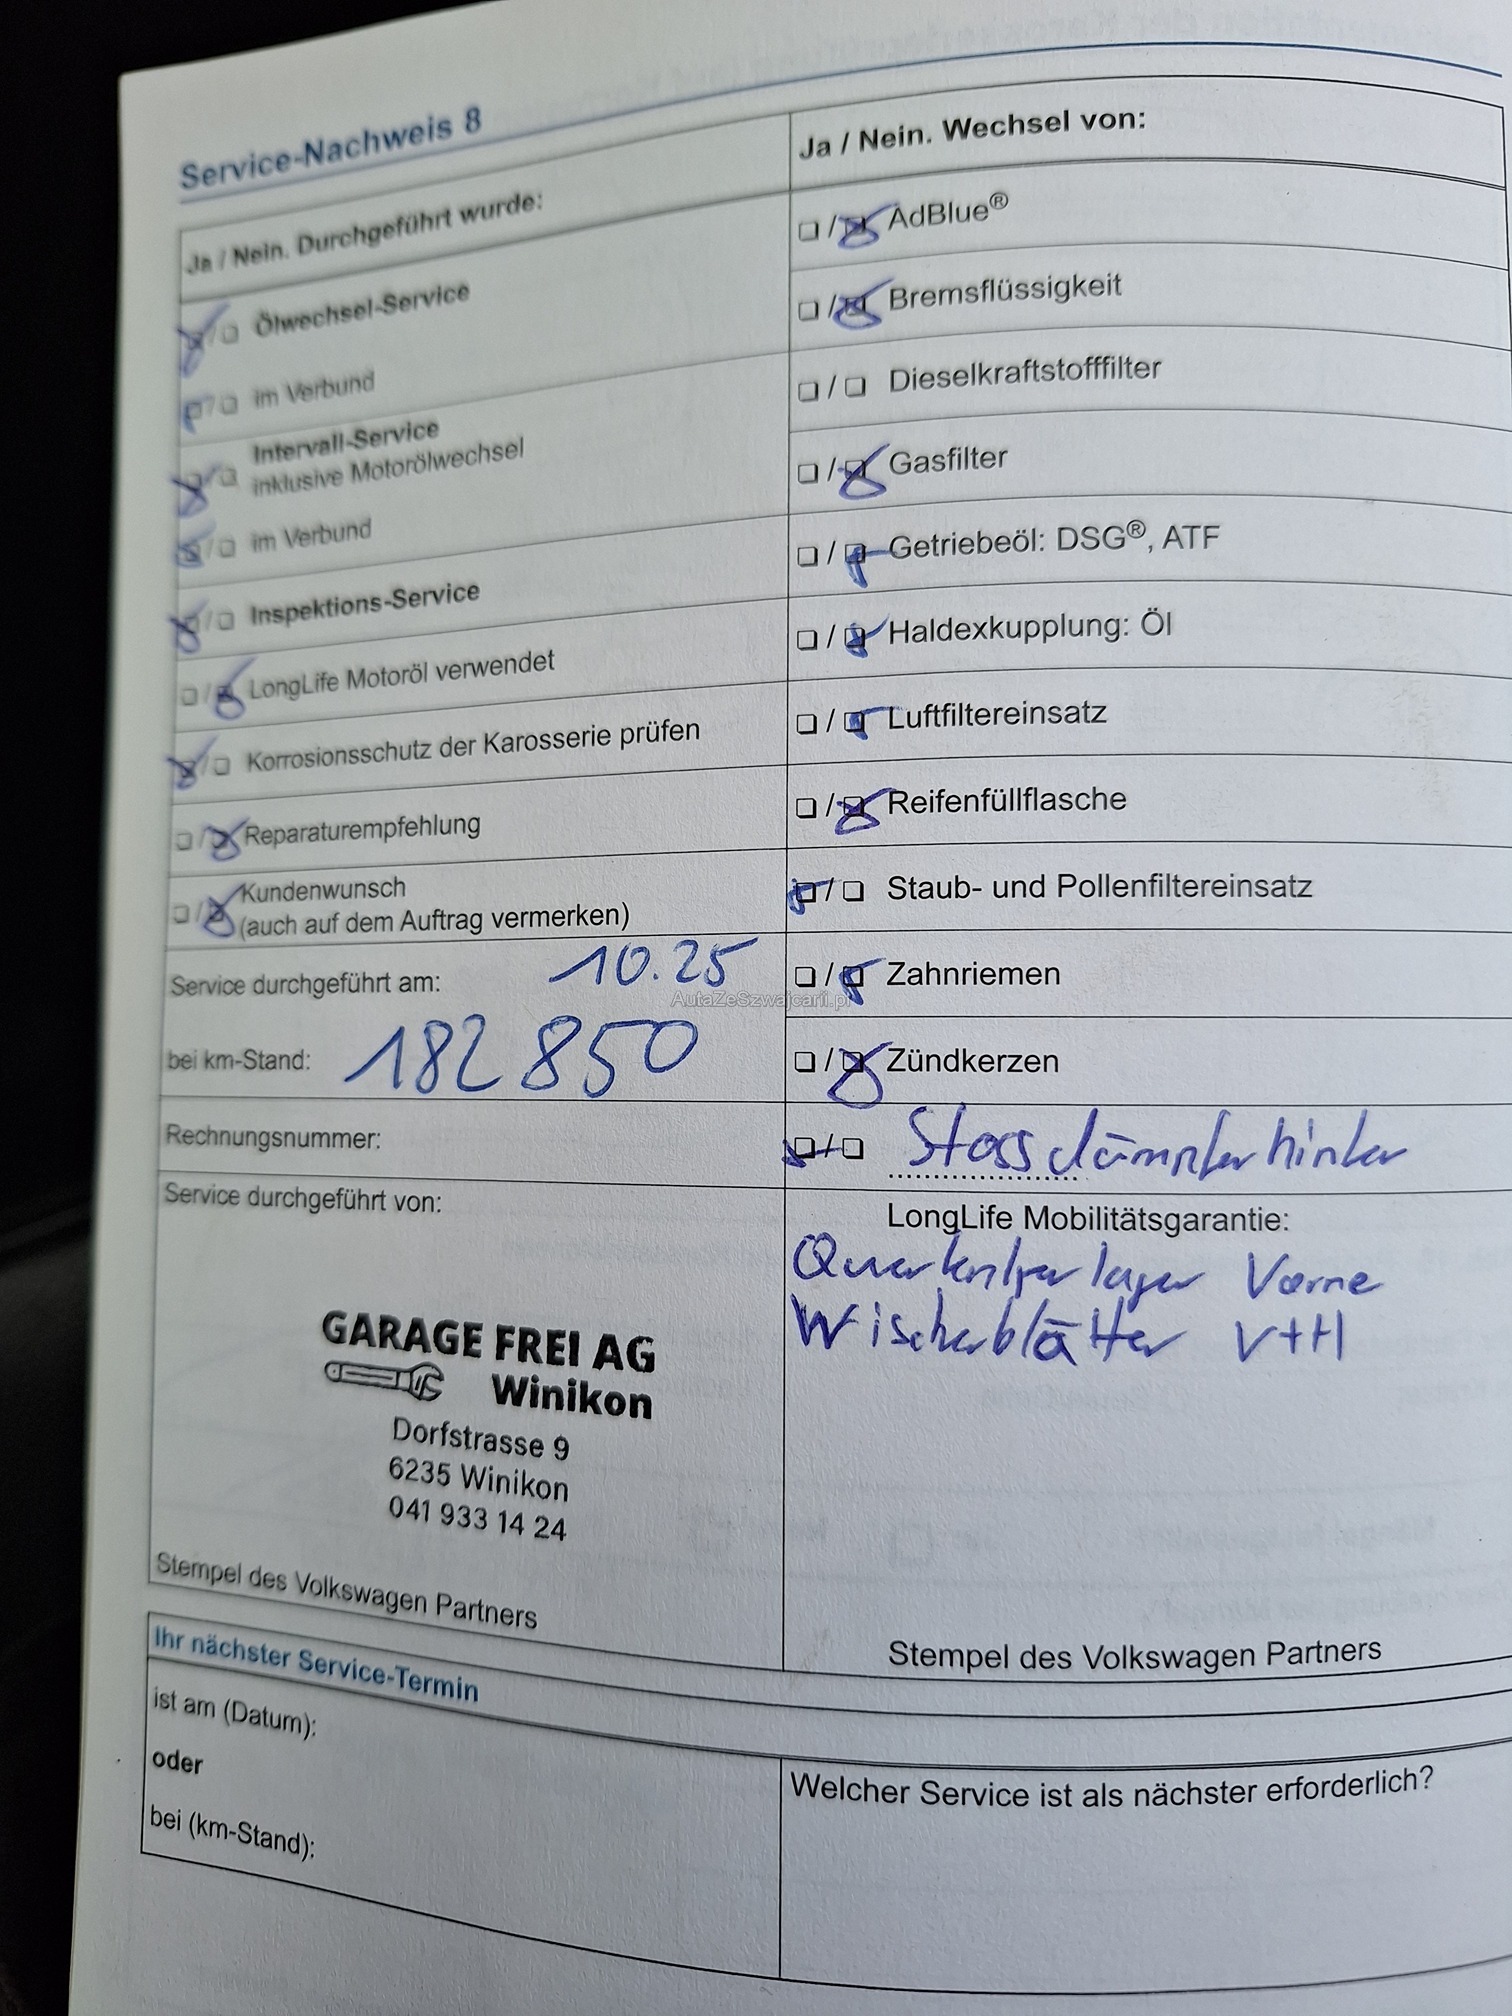 Service-Nachweis 8
Ja / Nein. Durchgeführt wurde:
Ölwechsel-Service
im Verbund
Intervall-Service
inklusive Motorölwechsel
im Verbund
Inspektions-Service
LongLife Motoröl verwendet
Korrosionsschutz der Karosserie prüfen
Reparaturempfehlung
Kundenwunsch
(auch auf dem Auftrag vermerken)
Service durchgeführt am: 10.25
bei km-Stand: 182 850
Rechnungsnummer:
Service durchgeführt von:
GARAGE FREI AG
Winikon
Dorfstrasse 9
6235 Winikon
041 933 14 24
Stempel des Volkswagen Partners
Ja / Nein. Wechsel von:
AdBlue®
Bremsflüssigkeit
Dieselkraftstofffilter
Gasfilter
Getriebeöl: DSG®, ATF
Haldexkupplung: Öl
Luftfiltereinsatz
Reifenfüllflasche
Staub- und Pollenfiltereinsatz
Zahnriemen
Zündkerzen
Stossdämpfer hinten
LongLife Mobilitätsgarantie:
Querlenkerlager Vorne
Wischerblätter V+H
Stempel des Volkswagen Partners
Ihr nächster Service-Termin
ist am (Datum):
oder
bei (km-Stand):
Welcher Service ist als nächster erforderlich?
AutaZeSzwajcarii.pl